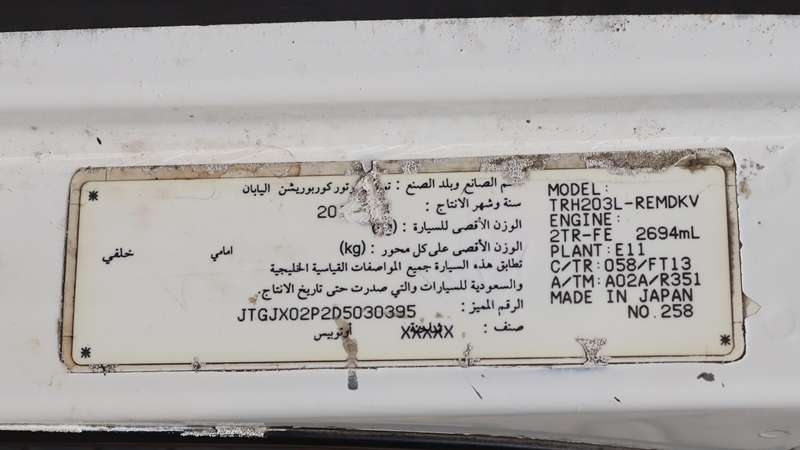 اسم الصانع وبلد الصنع : تويوتا موتور كوربوريشن اليابان
سنة وشهر الانتاج : 20
الوزن الأقصى للسيارة : (kg)
الوزن الأقصى على كل محور : (kg) امامي خلفي
تطابق هذه السيارة جميع المواصفات القياسية الخليجية
والسعودية للسيارات والتي صدرت حتى تاريخ الانتاج.
الرقم المميز :
JTGJX02P2D5030395
صنف : XXXXX أوتوبيس
MODEL:
TRH203L-REMDKV
ENGINE:
2TR-FE 2694mL
PLANT:E11
C/TR:058/FT13
A/TM:A02A/R351
MADE IN JAPAN
NO.258